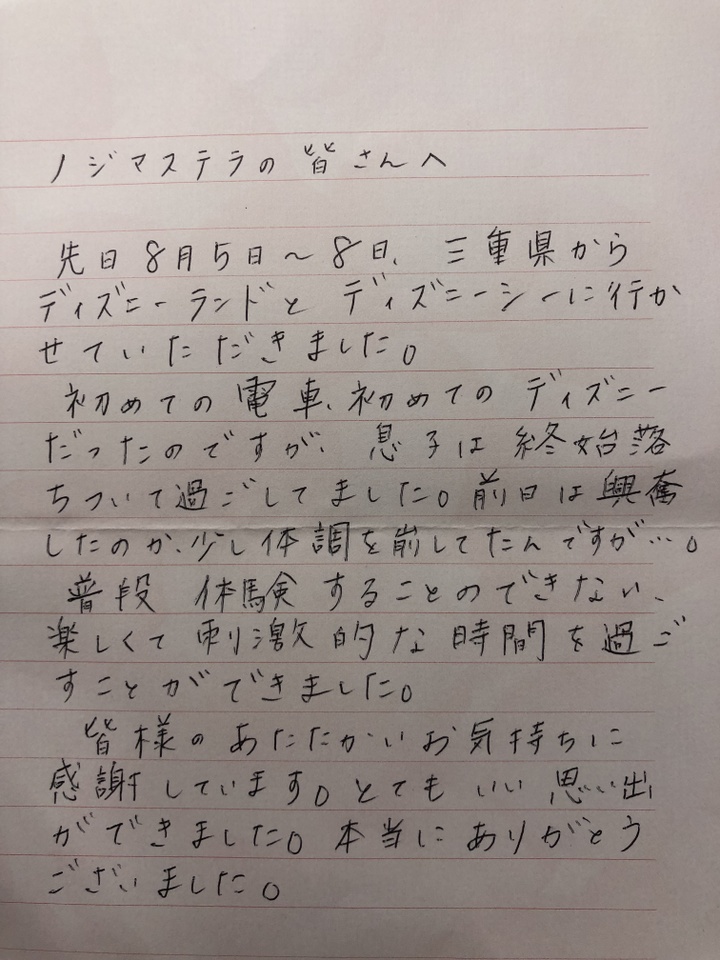 ノジマステラの皆さんへ
先日8月5日～8日、三重県から
ディズニーランドとディズニーシーに行か
せていただきました。
初めての電車、初めてのディズニー
だったのですが、息子は終始落
ちついて過ごしてました。前日は興奮
したのか、少し体調を崩してたんですが…。
普段 体験することのできない、
楽しくて刺激的な時間を過ご
すことができました。
皆様のあたたかいお気持ちに
感謝しています。とてもいい思い出
ができました。本当にありがとう
ございました。